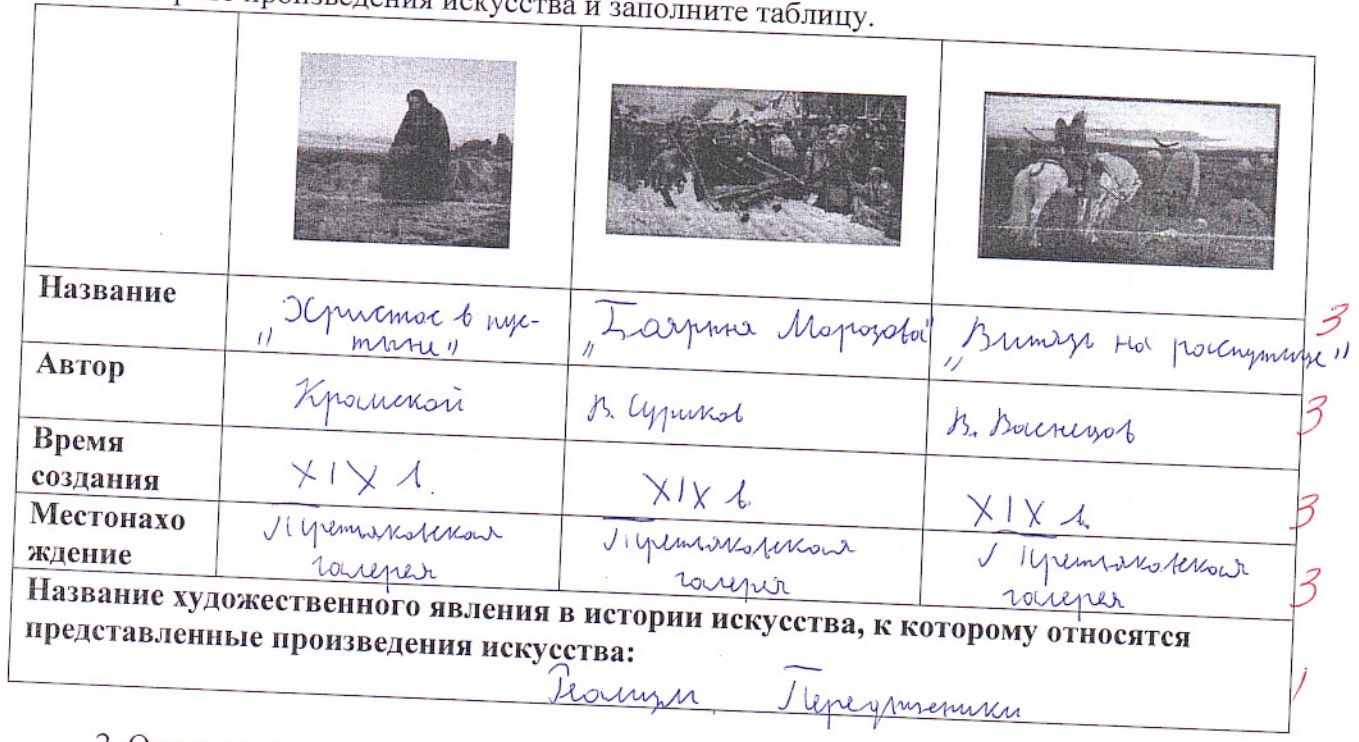 произведения искусства и заполните таблицу.
Название
„Христос в пус-
тыне"
„Боярыня Морозова"
„Витязь на распутице"
3
Автор
Крамской
В. Суриков
В. Васнецов
3
Время
создания
XIX в.
XIX в.
XIX в.
3
Местонахо
ждение
Третьяковская
галерея
Третьяковская
галерея
Третьяковская
галерея
3
Название художественного явления в истории искусства, к которому относятся
представленные произведения искусства:
Реализм, Передвженики
1